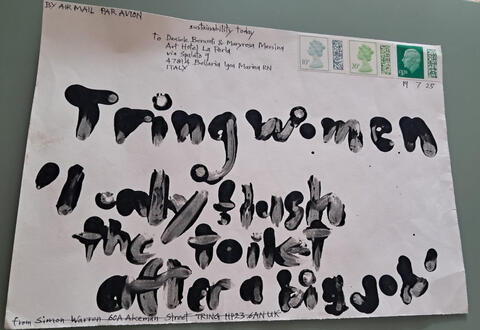 BY AIR MAIL PAR AVION
sustainability today
to Daniele Berardi & Maryrosa Messina
Art Hotel La Perla
via Spalato 9
47814 Bellaria Igea Marina RN
ITALY
19 7 25
Tring women
'I only flush
the toilet
after a big job'
from Simon Warren 60A Akeman Street TRING HP23 6AN UK